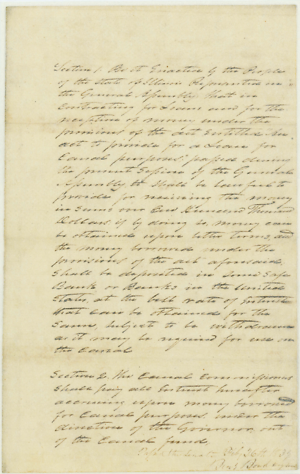 Section 1 Be it Enacted by the People
of the State of Illinois Represented in
the General Assembly that in
contracting for Loans and for the
reception of money under the
provisions of the act entitled "An
act to provide for a Loan for
Canal purposes" passed during
the present Session of the General
Assembly it shall be lawful to
provide for receiving the money
in Sums one Hundred Thousand
Dollars if by doing so money can
be obtained upon better terms and
the money borrowed under the
provisions of the act aforesaid
shall be deposited in Some Safe
Bank or Banks in the United
States, at the best rate of Interest
that can be obtained for the
Same, subject to be withdrawn
as it may be required for use on
the Canal
Section 2. The Canal Commissioners
shall pay all Interest hereafter
accruing upon money borrowed
for Canal purposes, under the
direction of the Governor out
of the Canal fund.